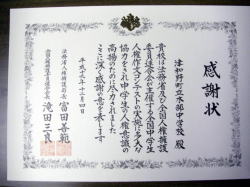 感謝状
津和野町立木部中学校 殿
貴校は法務省及び全国人権擁護
委員連合会が主催する全国中学生
人権作文コンテストの実施に多大の
協力をされ中学生の人権意識の
高揚のため尽力されました
ここに深く感謝の意を表します
平成十六年十二月四日
法務省人権擁護局長 富田善範
全国人権擁護委員連合会長 滝田三良